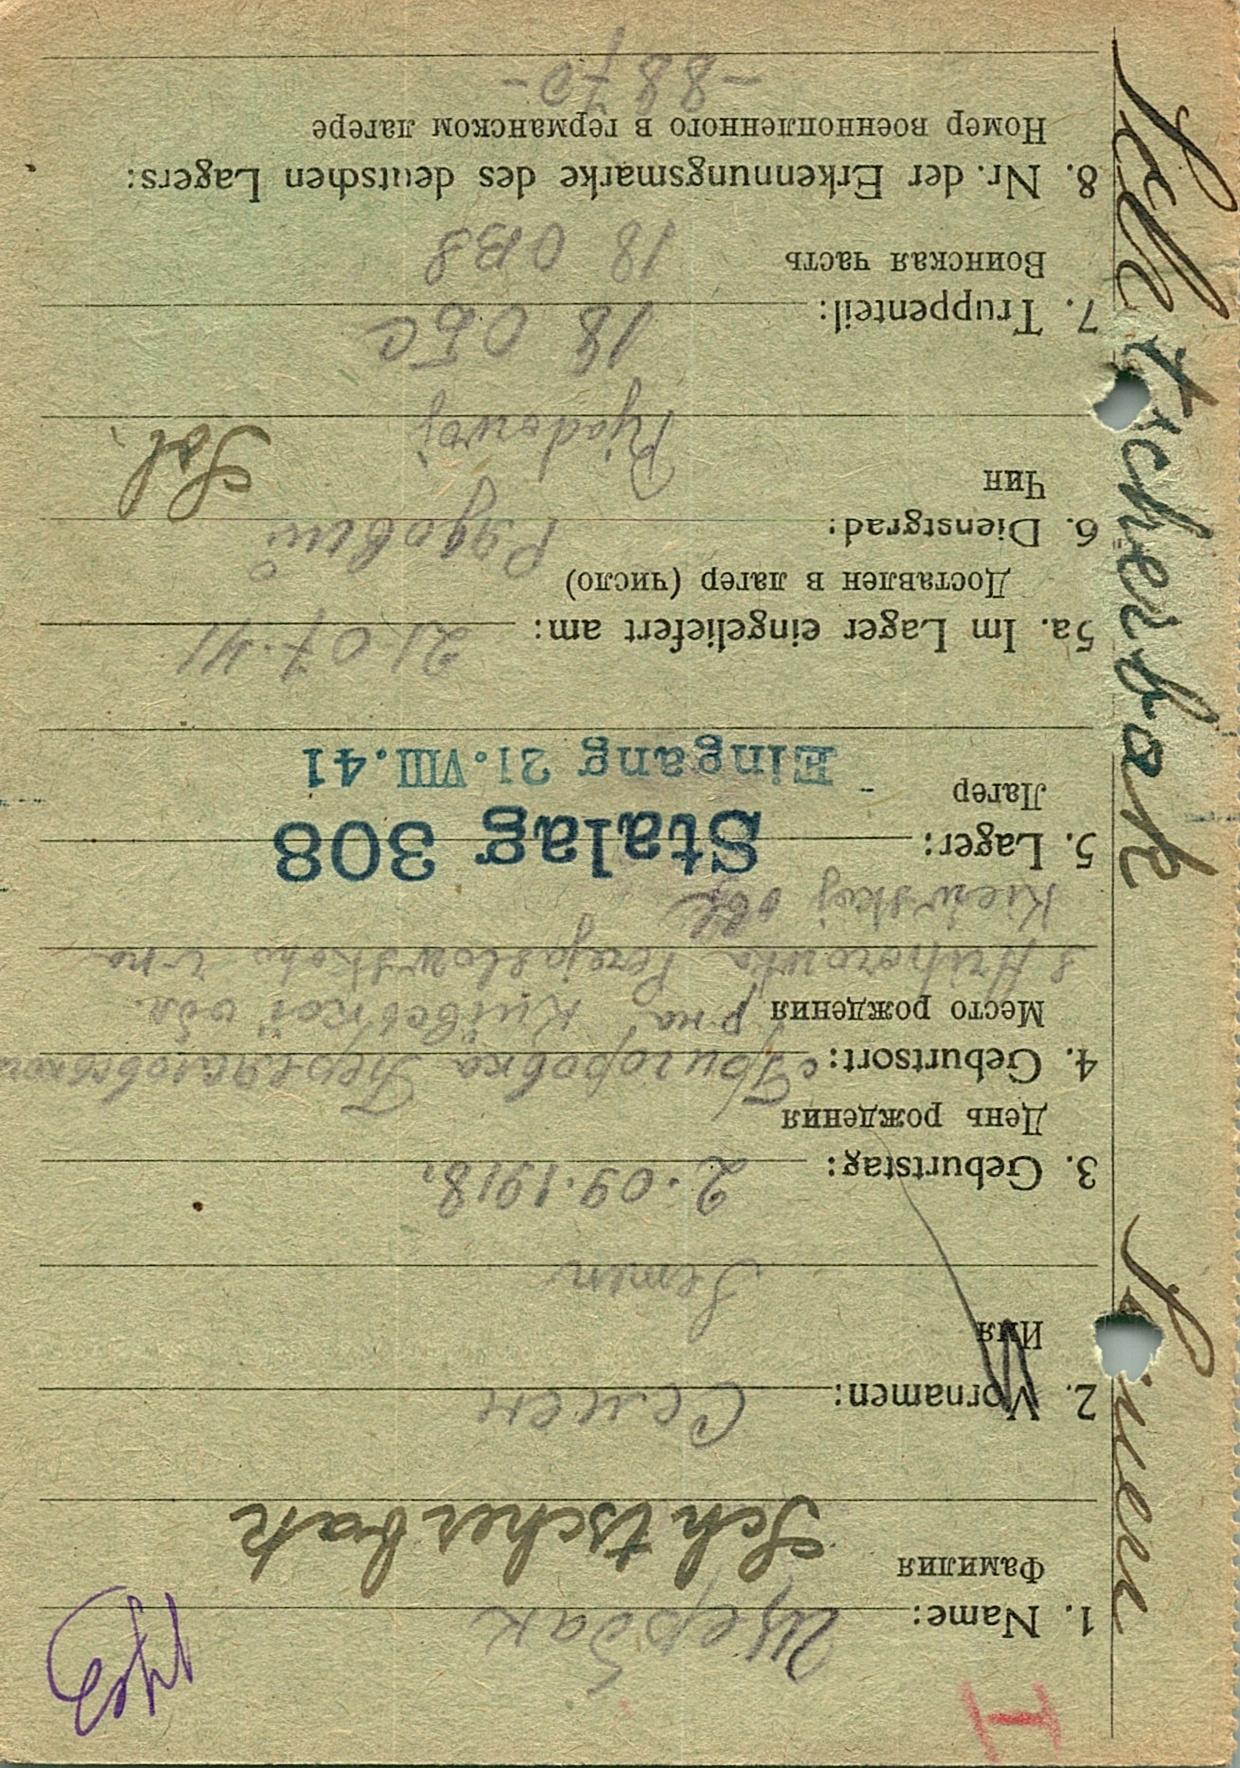 I
1. Name: Щербак
Фамилия
Schtscherbak
2. Vornamen: Семен
Имя
Semen
3. Geburtstag: 2.09.1918.
День рождения
4. Geburtsort: с Григоровка Переяславской
Место рождения р-на Киевской обл.
s Hrihorowka Perejaslowskoho r-na
Kiewskoj obl
5. Lager: Stalag 308
Лагер
Eingang 21.VIII.41
5a. Im Lager eingeliefert am: 21.07.41
Доставлен в лагер (число)
6. Dienstgrad: Рядовий
Чин
Sol.
Rjadowoj
7. Truppenteil: 18 ОБС
Воинская часть 18 OBS
8. Nr. der Erkennungsmarke des deutschen Lagers:
Номер военнопленного в германском лагере
-8870-
Schtscherbak Semen